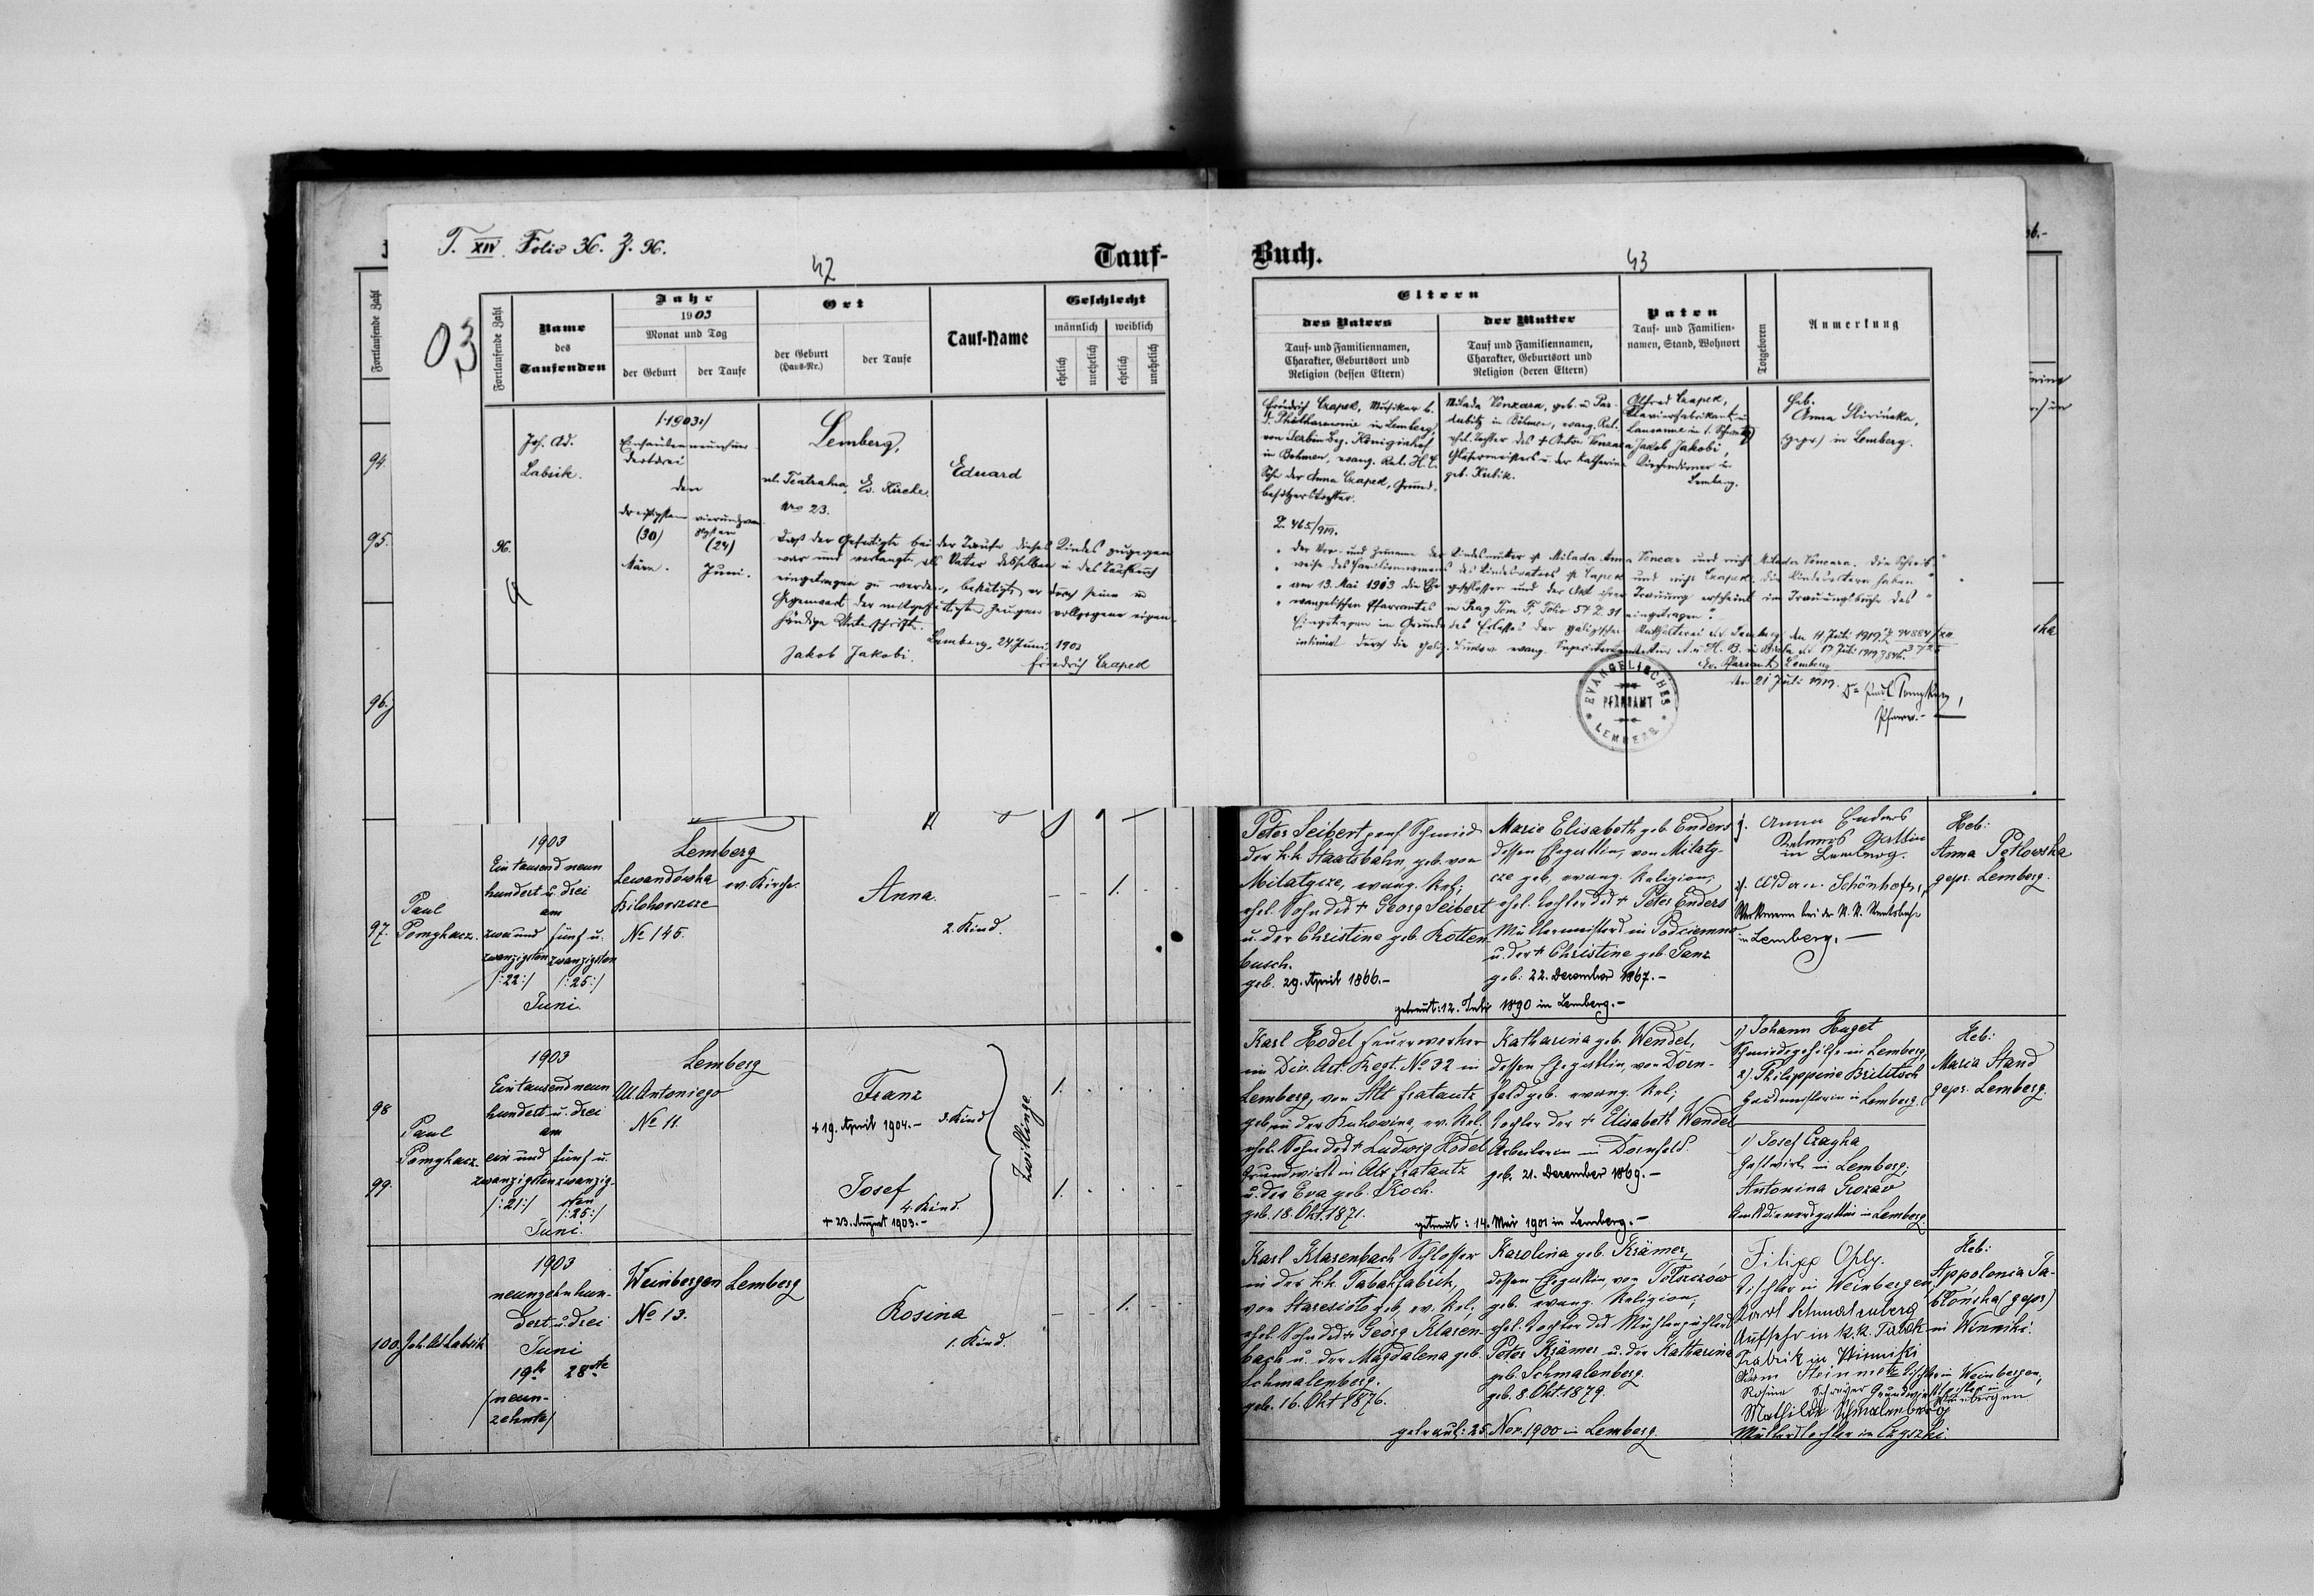 T. XIV. Folio 36. Z. 96.
42
Tauf-
Buch.
43
03
Fortlaufende Zahl
Fortlaufende Zahl
Name
des
Taufenden
Jahr
1903
Monat und Tag
der Geburt
der Taufe
Ort
der Geburt
(Haus-Nr.)
der Taufe
Tauf-Name
Geschlecht
männlich
weiblich
ehelich
unehelich
ehelich
unehelich
Eltern
des Vaters
Tauf- und Familiennamen,
Charakter, Geburtsort und
Religion (dessen Eltern)
der Mutter
Tauf und Familiennamen,
Charakter, Geburtsort und
Religion (deren Eltern)
Paten
Tauf- und Familien-
namen, Stand, Wohnort
Totgeboren
Anmerkung
94.
95.
96.
96.
Joh. Ad.
Labsik.
/:1903:/
Eintausendneunhun-
dertdrei
den
dreißigsten
(30)
März.
vierundzwan-
zigsten
(24)
Juni.
Lemberg,
ul. Teatralna,
Nro 23.
Ev. Kirche.
Eduard
Daß der Gefertigte bei der Taufe dieses Kindes zugegen
war und verlangte als Vater desselben in das Taufbuch
eingetragen zu werden, bestätigt er durch seine in
Gegenwart der mitgefertigten Zeugen vollzogene eigen-
händige Unterschrift.
Lemberg, 24 Juni 1903
Jakob Jakobi.
Friedrich Czapek
Friedrich Czapek, Musiker b.
d. Philharmonie in Lemberg,
von Bez. Königinhof
in Böhmen, evang. Rel. H. C.
Sohn der Anna Czapek, Grund-
besitzerstochter.
Milada Vonzara, geb. in Par-
dubitz in Böhmen, evang. Rel.
ehel. Tochter des + Anton Vonzara
Glasermeisters u. der Katharina
geb. Kubik.
Alfred Czapek,
Klavierfabrikant in
Lausanne in d. Schweiz
Jakob Jakobi,
Kirchendiener in
Lemberg.
Heb.
Anna Slivinska,
(gepr) in Lemberg.
Z. 465/919.
"Der Vor- und Zuname der Kindesmutter ist Milada Anna und nicht Milada Vonzara. Die Schreib-
"weise des Familiennamens des Kindesvaters ist Capek und nicht Czapek. Die Kindeseltern haben
"am 13. Mai 1903 die Ehe geschlossen und der Akt ihrer Trauung erscheint im Trauungsbuche des
"evangelischen Pfarramtes in Prag Tom F, Folio 57 Z. 31 eingetragen."
Eingetragen im Grunde des Erlasses der galizischen Statthalterei in Lemberg den 11 Juli 1919 Z 94884/XII
intimiert durch die galiz. evang. Superintendentur A. u H. B. in Biala 17 Juli 1919
Ev. Pfarramt Lemberg
den 21 Juli 1919.
Pfarrer.-
EVANGELISCHES
PFARRAMT
LEMBERG
97.
Paul
Pomykacz.
1903
Ein tausend neun
hundert u. drei
am
zwei und
zwanzigsten
/:22:/
fünf u.
zwanzigsten
/:25:/
Juni.
Lemberg
Lewandówka
Bilohorszcze
No 145.
ev. Kirche.
Anna.
2. Kind.
1.
Peter Seibert gepr. Schmied
der k.k. Staatsbahn geb. von
Milatycze, evang. Rel;
ehel. Sohn des + Georg Seibert
u. der Christine geb. Rotten-
busch.
geb. 29. April 1866.-
Marie Elisabeth geb. Enders
dessen Ehegattin, von Milaty-
cze geb, evang. Religion,
ehel. Tochter des + Peter Enders
Müllermeisters in Podciemno
u. der + Christine geb. Ganz
geb: 22. Dezember 1867.-
getraut: 12. Juli 1890 in Lemberg.-
1. Anna Enders
Gattin
in Lemberg.
2. Schönhofer,
Werkmann bei der K. K. Staatsbahn
in Lemberg.-
Heb:
Anna Petlowska
gepr. Lemberg.
98
99.
Paul
Pomykacz.
1903
Eintausendneun
hundert u. drei
am
ein und
zwanzigsten
/:21:/
fünf u.
zwanzig-
sten
/:25:/
Juni.
Lemberg
Ul. Antoniego
No 11.
Franz
+ 19. April 1904.-
3. Kind
Josef
4. Kind.
+ 23. August 1903.-
Zwillinge
1.
1.
Karl Hodel Feuerwerker
im Div. Art. Regt. No 32 in
Lemberg, von Alt fratautz
geb, in der Bukowina, ev. Rel,
ehel. Sohn des + Ludwig Hodel
Grundwirts in Alt fratautz
u. der Eva geb. Koch.
geb. 18. Okt. 1871.
Katharina geb. Wendel,
dessen Ehegattin, von Dorn-
feld geb. evang. Rel;
Tochter der + Elisabeth Wendel
Arbeiterin in Dornfeld.
geb. 21. Dezember 1869.-
getraut: 14. Mai 1901 in Lemberg.-
1) Johann Huget
Schmiedegehilfe in Lemberg,
2) Philippine Brilitsch
in Lemberg.
1) Josef Czagka
Gastwirt in Lemberg;
Antonina Grozav
Amtsdienersgattin in Lemberg.
Heb:
Maria Stand
gepr. Lemberg.
100.
Joh. Ad. Labsik
1903
neunzehnhun-
dert u. drei
Juni
19te
/neun-
zehnte/
28ste
Weinbergen
No 13.
Lemberg
Rosina
1. Kind.
1.
Karl Klarenbach Schlosser
in der k.k. Tabakfabrik,
von Staresioto geb, ev. Rel;
ehel. Sohn des + Georg Klaren-
bach u. der Magdalena geb.
Schmalenberg.
geb. 16. Okt 1876.
Karolina geb. Krämer,
dessen Ehegattin, von Tołszczów
geb. evang. Religion,
ehel. Tochter des Mühlenpächters
Peter Krämer u. der Katharina
geb. Schmalenberg
geb. 8. Okt. 1879.
getraut: 25 Nov. 1900 in Lemberg.
Filipp Ohly.
Tischler in Weinbergen
Karl Schmalenberg
Aufseher in K.k. Tabak
Fabrik in Winniki
Steinmetz Tischler in Weinbergen,
Rosina Schreyer Grundwirtstochter in
Weinbergen
Mathilde Schmalenberg
Müllerstochter in Czyszki.
Heb:
Appolonia Ja-
błońska (gepr)
in Winniki.